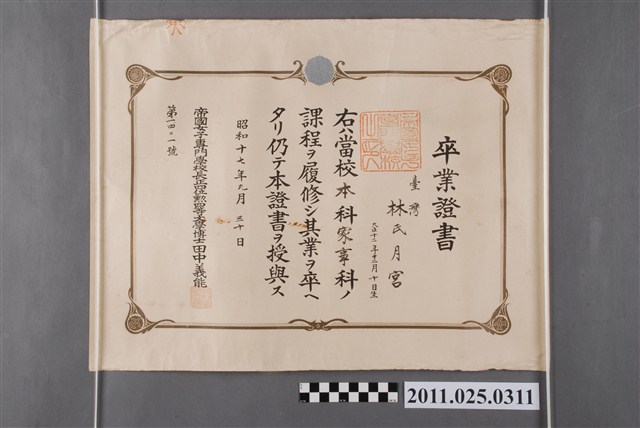 卒業證書
臺灣
林氏月宮
大正十二年十二月十日生
右ハ當校本科家事科ノ
課程ヲ履修シ其業ヲ卒ヘ
タリ仍テ本證書ヲ授與ス
昭和十七年九月三十日
帝國女子專門學校長正四位勲四等文學博士田中義能
第一四二一號
2011.025.0311